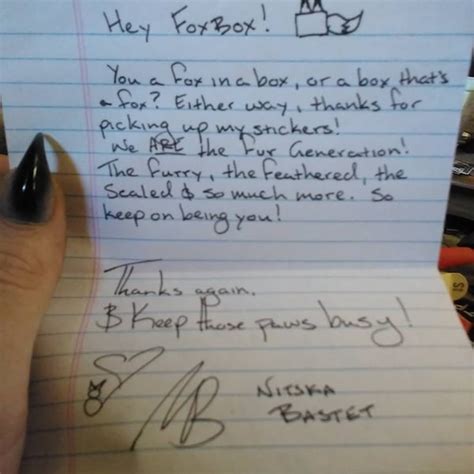 Hey FoxBox!
You a fox in a box, or a box that's
a fox? Either way, thanks for
picking up my stickers!
We ARE the Fur Generation!
The furry, the feathered, the
scaled & so much more. So
keep on being you!
Thanks again.
& Keep those paws busy!
NB
NITSKA
BASTET